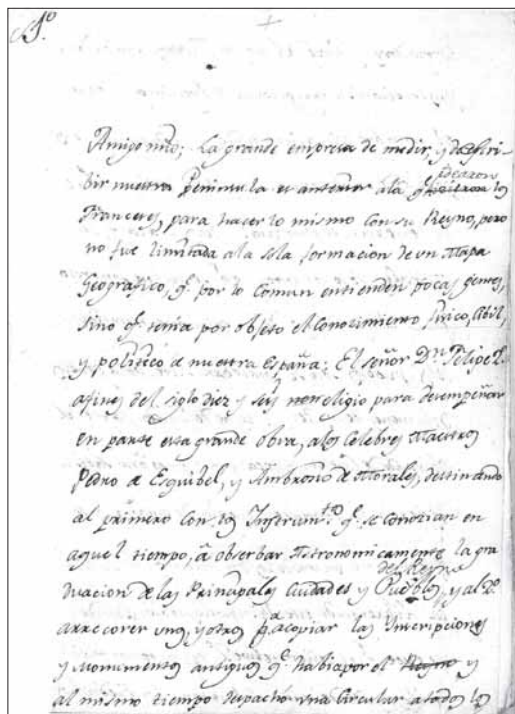 1º
Amigo mio; La grande empresa de medir, y descri-
bir nuestra Peninsula es anterior a la q
idearon
los
Franceses, para hacer lo mismo con su Reyno, pero
no fue limitada a la sola formacion de un Mapa
Geografico, q. por lo comun entienden pocas gentes,
sino q. tenia por objeto el Conocimiento fisico, Cibil,
y politico de nuestra España: El señor Dn. Felipe 2º
a fines del siglo diez y seis eligio para desempeñar
en parte esta grande obra, a los Celebres Maestros
Pedro de Esquibel, y Ambrosio de Morales, destinando
al primero con los Instrumtos q. se conozian en
aquel tiempo, a observar Astronomicamente la gra
duacion de las Principales Ciudades y Pueblos
del Reyno
, y al 2º
a rrecorer unos, y otros pa. acopiar las Inscripciones
y Monumentos antiguos q. habia por el Reyno y
al mismo tiempo despacho una Circular a todos los